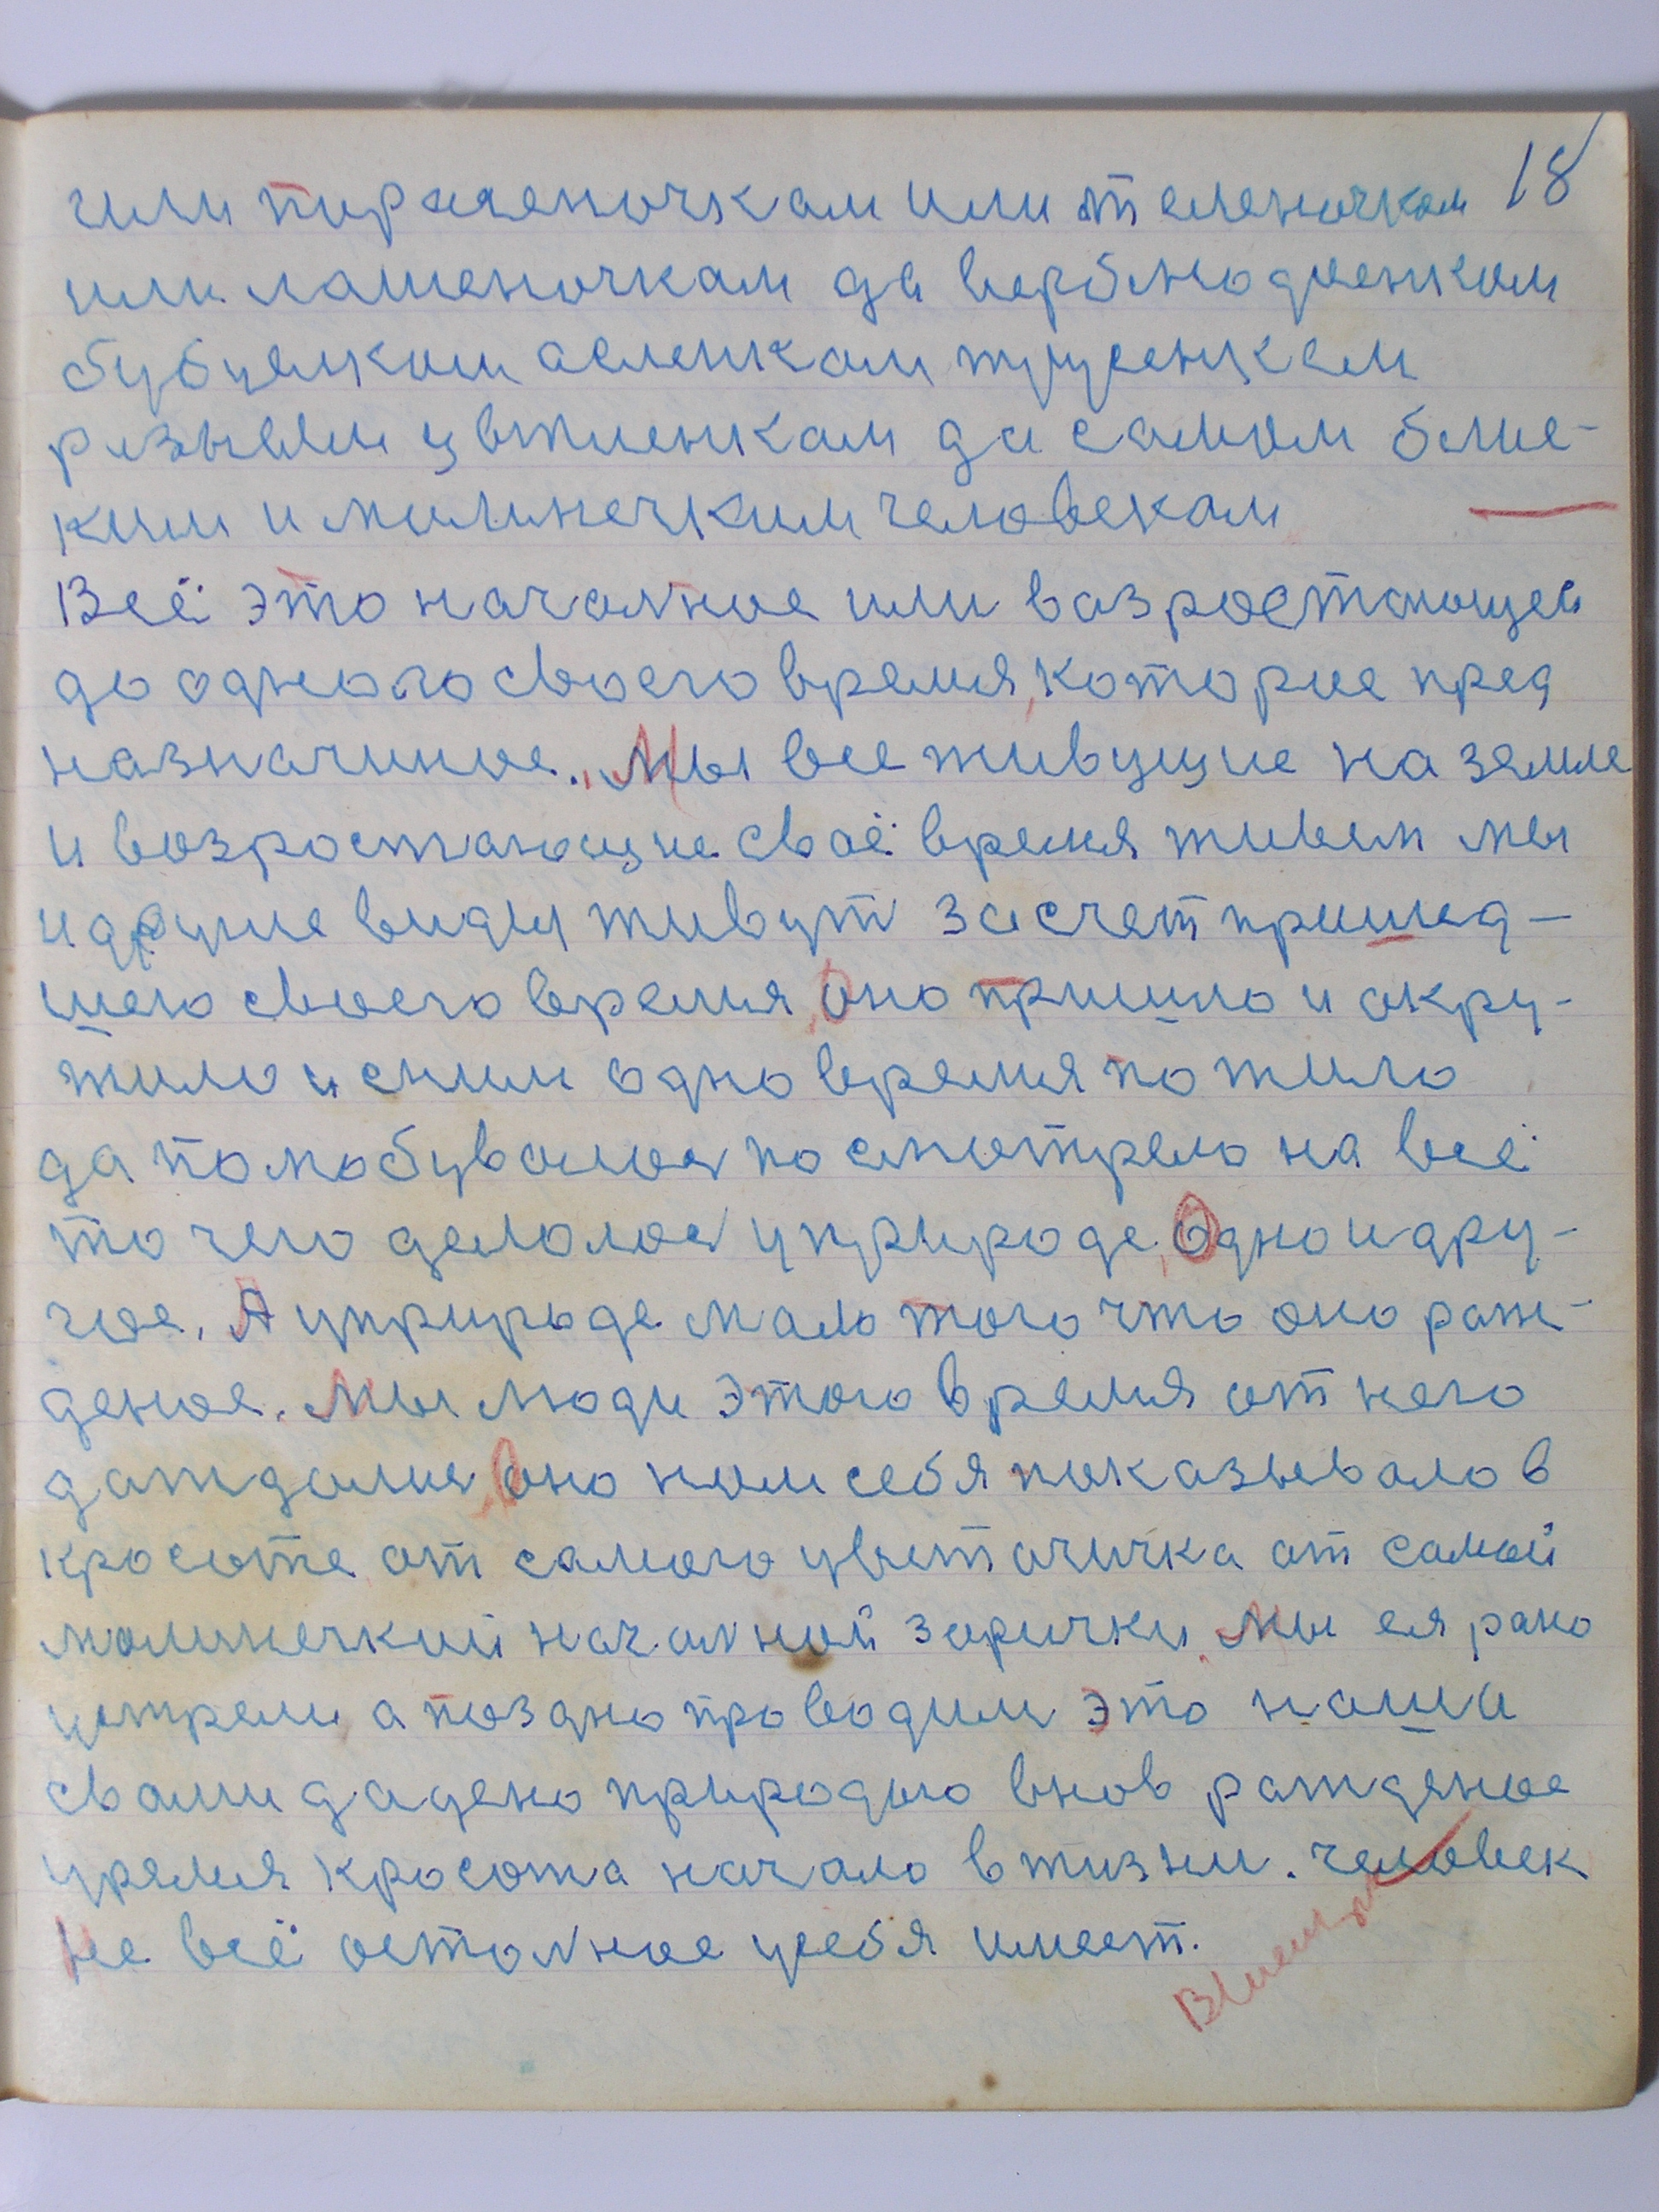 18
или пираженочкам или теленочкам
или лашеночкам да верблюдженкам
бубуялкам асленкам трусенкам
разыем цвтиенкам да самом бли-
ким и малинечким человекам
Всё это началное или возростающей
до одного своего время, которие пред
назначиное. Мы все живущие на земле
и возростающие своё время живем мы
и другие виды живут засчет пришед-
шего своего время, Оно пришло и окру-
жило и сним одно время по жило
да помобувалося по смотрело на всё
то чего делолося уприроде, Одно и дру-
гое. А уприроде мало того что оно раж-
деное. Мы люди этого время от него
даждалися, Оно нам себя показывало в
кросоте от самого цветочичка от самой
малинечкий началной зарички. Мы ея рано
устрели а поздно проводили это наша
свами дадено природою внов ражденое
урямя кросота начало вжизни. человек
не всё осталное усебя имеет.